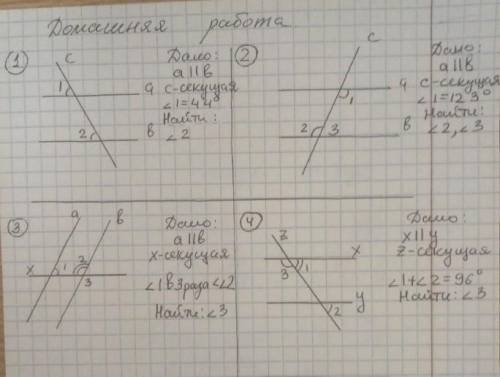 Домашняя работа
1
c
1
a
2
b
Дано:
a||b
c-секущая
∠1=44°
Найти:
∠2
2
c
a
1
2 3
b
Дано:
a||b
c-секущая
∠1=123°
Найти:
∠2,∠3
3
a b
x 1 2
3
Дано:
a||b
x-секущая
∠1 в 3 раза < ∠2
Найти: ∠3
4
z
x
3 1
y
2
Дано:
x||y
z-секущая
∠1+∠2=96°
Найти: ∠3